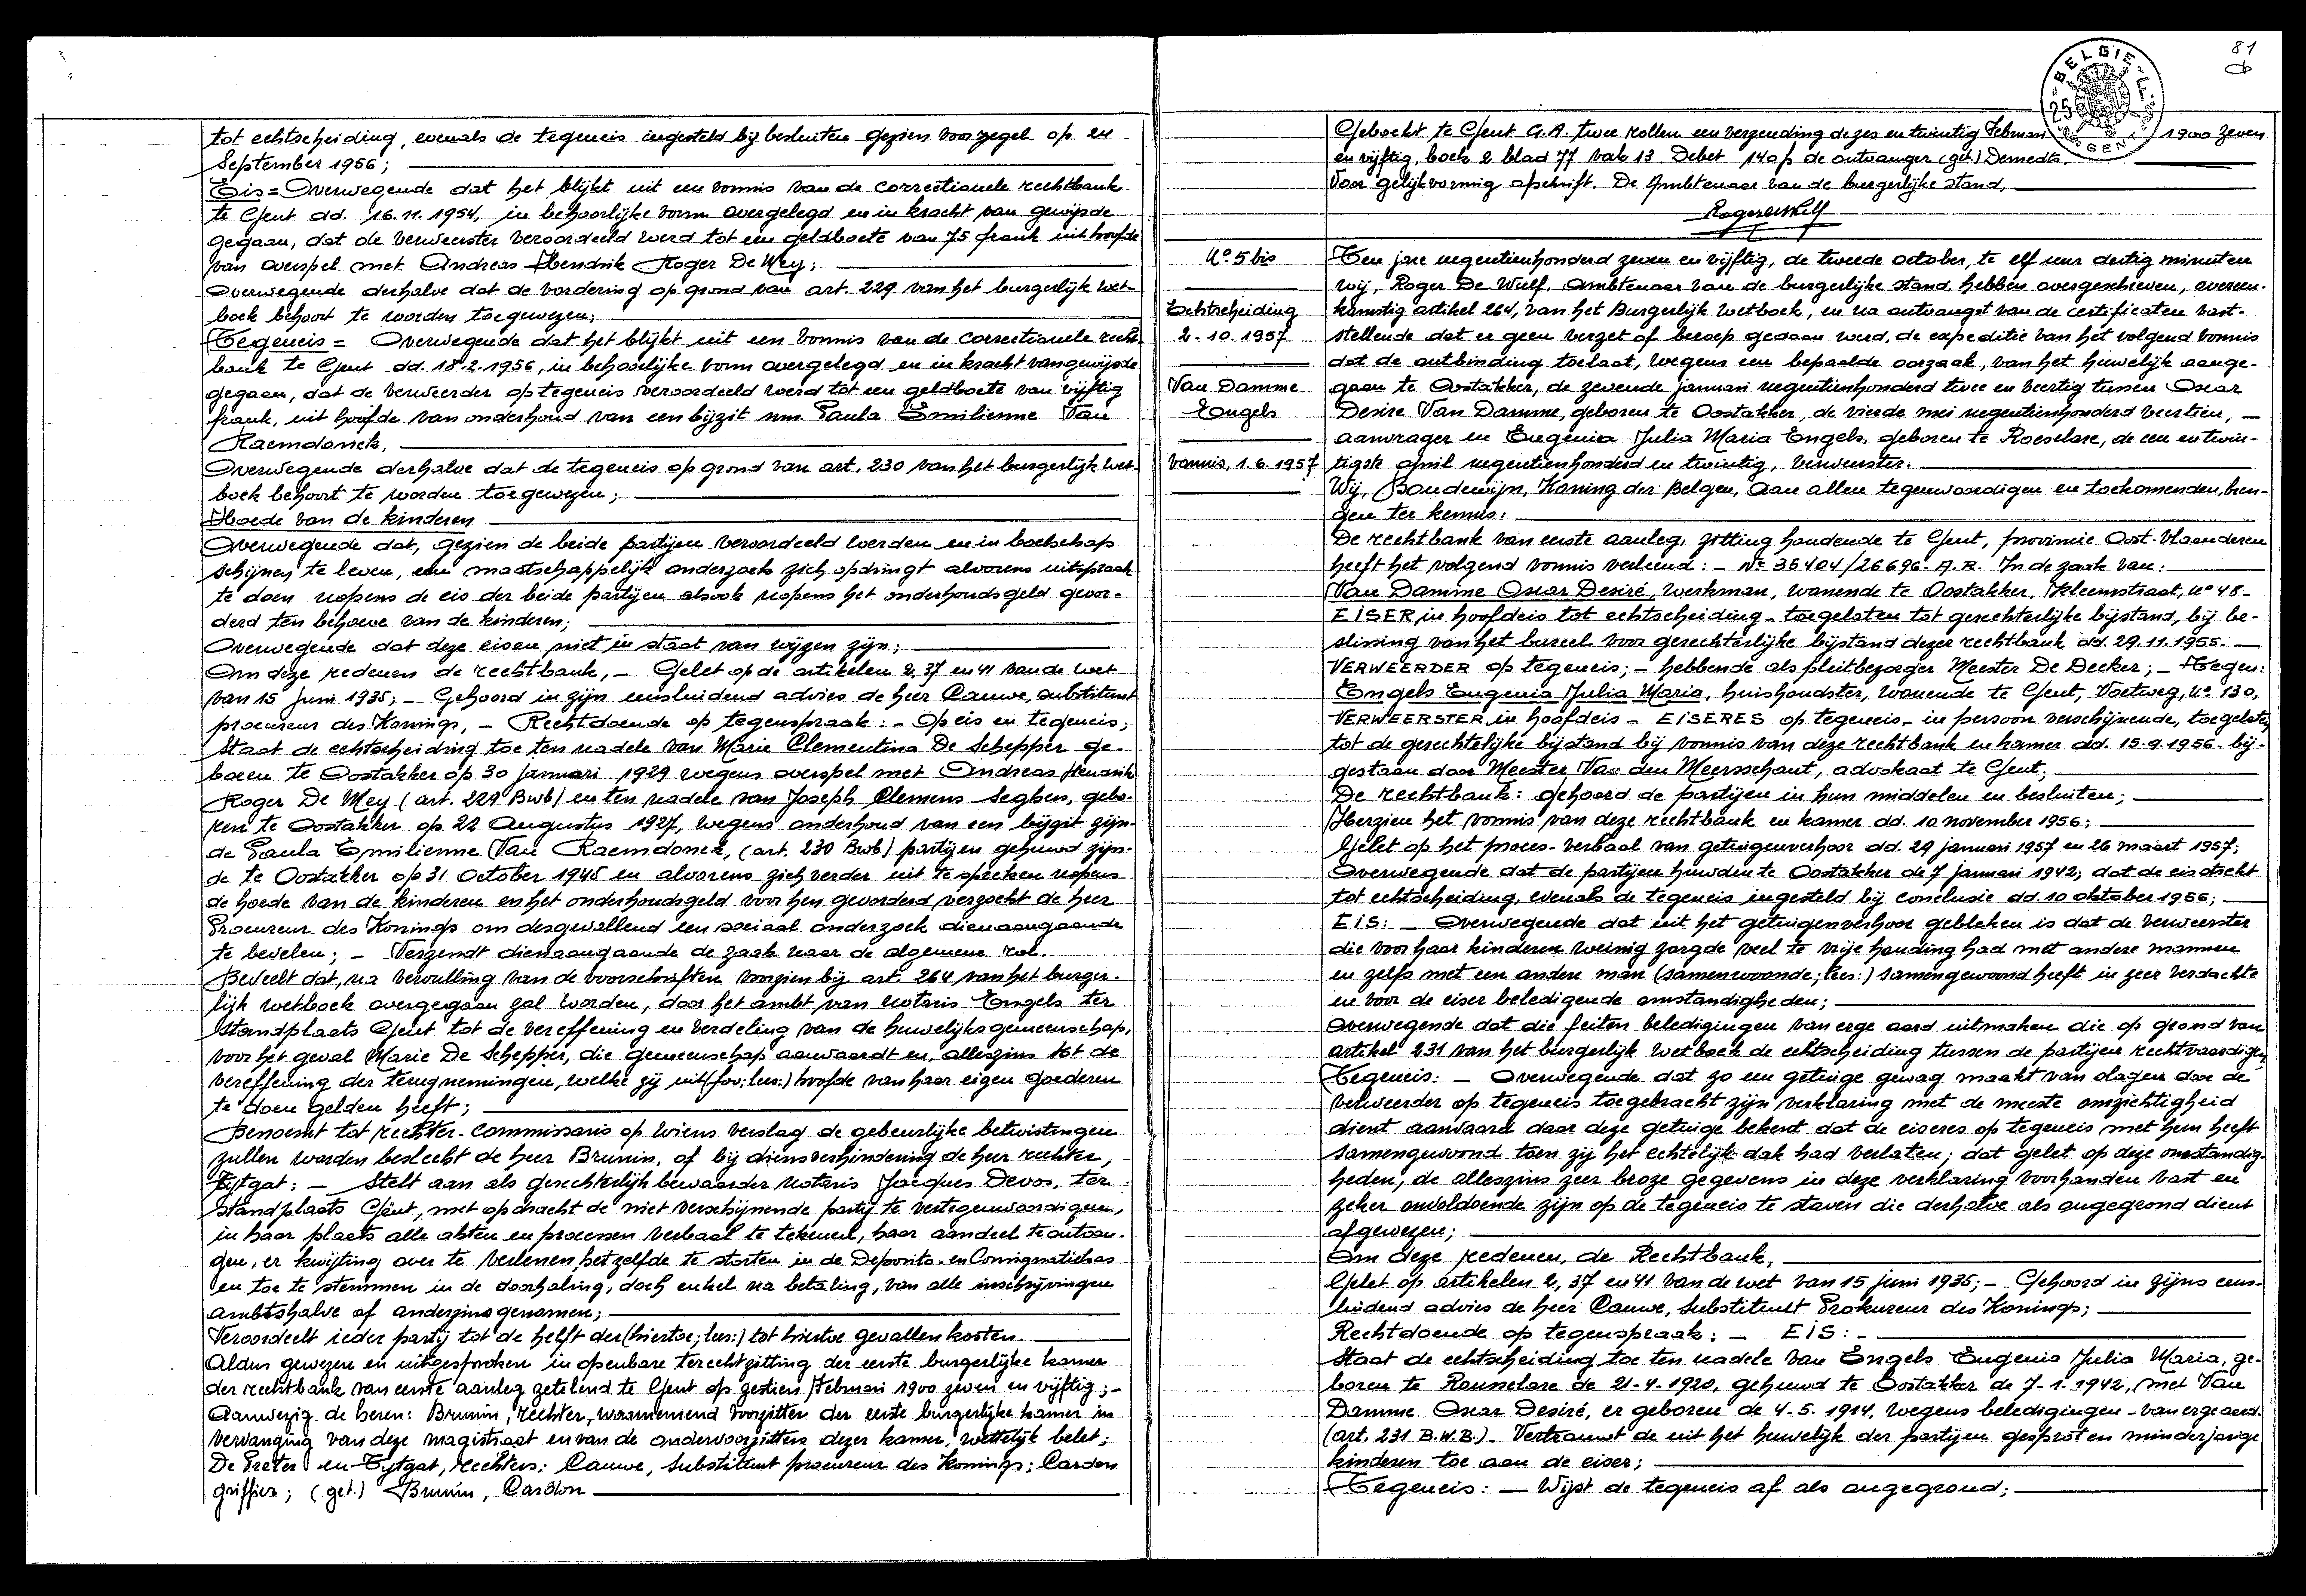 tot echtscheiding, evenals de tegeneis ingesteld bij besluiten gezien voor zegel op
September 1956;
Eis = Overwegende dat het blijkt uit een vonnis van de correctionele rechtbank
te Gent dd. 16.11.1954, in behoorlijke vorm overgelegd en in kracht van gewijsde
gegaan, dat de verweerster veroordeeld werd tot een geldboete van 75 frank uit hoofde
van overspel met Andreas Hendrik Roger De Mey;
Overwegende derhalve dat de vordering op grond van art. 229 van het burgerlijk wet-
boek behoort te worden toegewezen;
Tegeneis = Overwegende dat het blijkt uit een vonnis van de correctionele recht-
bank te Gent dd. 18.2.1956, in behoorlijke vorm overgelegd en in kracht van gewijsde
gegaan, dat de verweerder op tegeneis veroordeeld werd tot een geldboete van vijftig
frank, uit hoofde van onderhoud van een bijzit nm. Paula Emilienne Van
Raemdonck,
Overwegende derhalve dat de tegeneis op grond van art. 230 van het burgerlijk wet-
boek behoort te worden toegewezen;
Hoede van de kinderen
Overwegende dat, gezien de beide partijen veroordeeld werden en in boelschap
schijnen te leven, een maatschappelijk onderzoek zich opdringt alvorens uitspraak
te doen nopens de eis der beide partijen alsook nopens het onderhoudsgeld gevor-
derd ten behoeve van de kinderen;
Overwegende dat deze eisen niet in staat van wijzen zijn;
Om deze redenen de rechtbank, - Gelet op de artikelen 2, 37 en 41 van de wet
van 15 juni 1935; - Gehoord in zijn eensluidend advies de heer Cauwe, substituut
procureur des Konings, - Rechtdoende op tegenspraak: - Op eis en tegeneis;
Staat de echtscheiding toe ten nadele van Marie Clementina De Schepper ge-
boren te Oostakker op 30 januari 1929 wegens overspel met Andreas Hendrik
Roger De Mey (art. 229 Bwb) en ten nadele van Joseph Clemens Seghers, gebo-
ren te Oostakker op 22 Augustus 1927, wegens onderhoud van een bijzit zijn-
de Paula Emilienne Van Raemdonck, (art. 230 Bwb) partijen gehuwd zijn-
de te Oostakker op 31 October 1945 en alvorens zich verder uit te spreken nopens
de hoede van de kinderen en het onderhoudsgeld voor hen gevorderd verzoekt de heer
Procureur des Konings om desgevallend een sociaal onderzoek dienaangaande
te bevelen; - Verzendt dienaangaande de zaak naar de algemene rol.
Beveelt dat, na vervulling van de voorschriften voorzien bij art. 264 van het burger-
lijk wetboek overgegaan zal worden, door het ambt van notaris Engels ter
standplaats Gent tot de vereffening en verdeling van de huwelijksgemeenschap,
voor het geval Marie De Schepper, die gemeenschap aanvaardt en, alleszins tot de
vereffening der terugnemingen, welke zij uit (fov; lees:) hoofde van haar eigen goederen
te doen gelden heeft;
Benoemt tot rechter-commissaris op wiens verslag de gebeurlijke betwistingen
zullen worden beslecht de heer Brunin, of bij diensverhindering de heer rechter,
Tytgat; - Stelt aan als gerechterlijk bewaarder notaris Jacques Devos, ter
standplaats Gent, met opdracht de niet verschijnende partij te vertegenwoordigen,
in haar plaats alle akten en processen verbaal te tekenen, haar aandeel te ontvan-
gen, er kwijting over te verlenen, hetzelfde te storten in de Deposito- en Consignatiekas
en toe te stemmen in de doorhaling, doch enkel na betaling, van alle inschrijvingen
ambtshalve of anderzins genomen;
Veroordeelt ieder partij tot de helft der (hiertoe; lees:) tot hiertoe gevallen kosten.
Aldus gewezen en uitgesproken in openbare terechtzitting der eerste burgerlijke kamer
der rechtbank van eerste aanleg zetelend te Gent op zestien Februari 1900 zeven en vijftig; -
Aanwezig de heren: Brunin, rechter, waarnemend voorzitter der eerste burgerlijke kamer in
vervanging van deze magistraat en van de ondervoorzitters dezer kamer, wettelijk belet;
De Preter en Tytgat, rechters; Cauwe, substituut procureur des Konings; Cardon
griffier; (get.) Brunin, Cardon
81
BELGIE
25
GENT
Geboekt te Gent G.A. twee rollen een verzending de zes en twintig Februari 1900 zeven
en vijftig, boek 2 blad 77 vak 13 Debet 140 f de ontvanger (get.) Demedts.
Voor gelijkvormig afschrift. De Ambtenaar van de burgerlijke stand,
Roger De Wulf
N° 5 bis
Echtscheiding
2-10.1957
Van Damme
Engels
vonnis, 1.6.1957
Ten jare negentienhonderd zeven en vijftig, de tweede october, te elf uur dertig minuten
wij, Roger De Wulf, Ambtenaar van de burgerlijke stand, hebben overgeschreven, overeen-
komstig artikel 264, van het Burgerlijk Wetboek, en na ontvangst van de certificaten vast-
stellende dat er geen verzet of beroep gedaan werd, de expeditie van het volgend vonnis
dat de ontbinding toelaat, wegens een bepaalde oorzaak, van het huwelijk aange-
gaan te Oostakker, de zevende januari negentienhonderd twee en veertig tussen Oscar
Desire Van Damme, geboren te Oostakker, de vierde mei negentienhonderd veertien, -
aanvrager en Eugenia Julia Maria Engels, geboren te Roeselare, de een en twin-
tigste april negentienhonderd en twintig, verweerster.
Wij, Boudewijn, Koning der Belgen, Aan allen tegenwoordigen en toekomenden, bren-
gen ter kennis:
De rechtbank van eerste aanleg, zitting houdende te Gent, provincie Oost-Vlaanderen
heeft het volgend vonnis verleend: - N° 35404/26696. A.R. In de zaak van:
Van Damme Oscar Desiré, werkman, wonende te Oostakker, Ikleemstraat, n° 48 -
EISER in hoofdeis tot echtscheiding - toegelaten tot gerechterlijke bijstand, bij be-
slissing van het bureel voor gerechterlijke bijstand dezer rechtbank dd. 29.11.1955. -
VERWEERDER op tegeneis; - hebbende als pleitbezorger Meester De Decker; - Tegen:
Engels Eugenia Julia Maria, huishoudster, wonende te Gent, Voetweg, n° 130,
VERWEERSTER in hoofdeis - EISERES op tegeneis, in persoon verschijnende, toegelaten
tot de gerechtelijke bijstand bij vonnis van deze rechtbank en kamer dd. 15.9.1956 - bij-
gestaan door Meester Van den Meersschaut, advokaat te Gent;
De rechtbank: gehoord de partijen in hun middelen en besluiten;
Herzien het vonnis van deze rechtbank en kamer dd. 10 november 1956;
Gelet op het proces-verbaal van getuigenverhoor dd. 29 januari 1957 en 26 maart 1957;
Overwegende dat de partijen huwden te Oostakker de 7 januari 1942; dat de eis strekt
tot echtscheiding, evenals de tegeneis ingesteld bij conclusie dd. 10 oktober 1956;
EIS: - Overwegende dat uit het getuigenverhoor gebleken is dat de verweerster
die voor haar kinderen weinig zorgde veel te vrije houding had met andere mannen
en zelfs met een andere man (samenwoonde; lees:) samengewoond heeft in zeer verdachte
en voor de eiser beledigende omstandigheden;
Overwegende dat die feiten beledigingen van erge aard uitmaken die op grond van
artikel 231 van het burgerlijk wetboek de echtscheiding tussen de partijen rechtvaardigen;
Tegeneis: - Overwegende dat zo een getuige gewag maakt van slagen door de
verweerder op tegeneis toegebracht zijn verklaring met de meeste omzichtigheid
dient aanvaard daar deze getuige bekent dat de eiseres op tegeneis met hem heeft
samengewoond toen zij het echtelijk dak had verlaten; dat gelet op deze omstandig-
heden, de alleszins zeer broze gegevens in deze verklaring voorhanden vast en
zeker onvoldoende zijn op de tegeneis te staven die derhalve als ongegrond dient
afgewezen;
Om deze redenen, de Rechtbank,
Gelet op artikelen 2, 37 en 41 van de wet van 15 juni 1935; - Gehoord in zijns eens-
luidend advies de heer Cauwe, Substituut Prokureur des Konings;
Rechtdoende op tegenspraak; - EIS: -
Staat de echtscheiding toe ten nadele van Engels Eugenia Julia Maria, ge-
boren te Rousselare de 21-4-1920, gehuwd te Oostakker de 7-1-1942, met Van
Damme Oscar Desiré, er geboren de 4-5.1914, wegens beledigingen - van erge aard.
(art. 231 B.W.B.) - Vertrouwt de uit het huwelijk der partijen gesproten minderjarige
kinderen toe aan de eiser;
Tegeneis: - Wijst de tegeneis af als ongegrond;